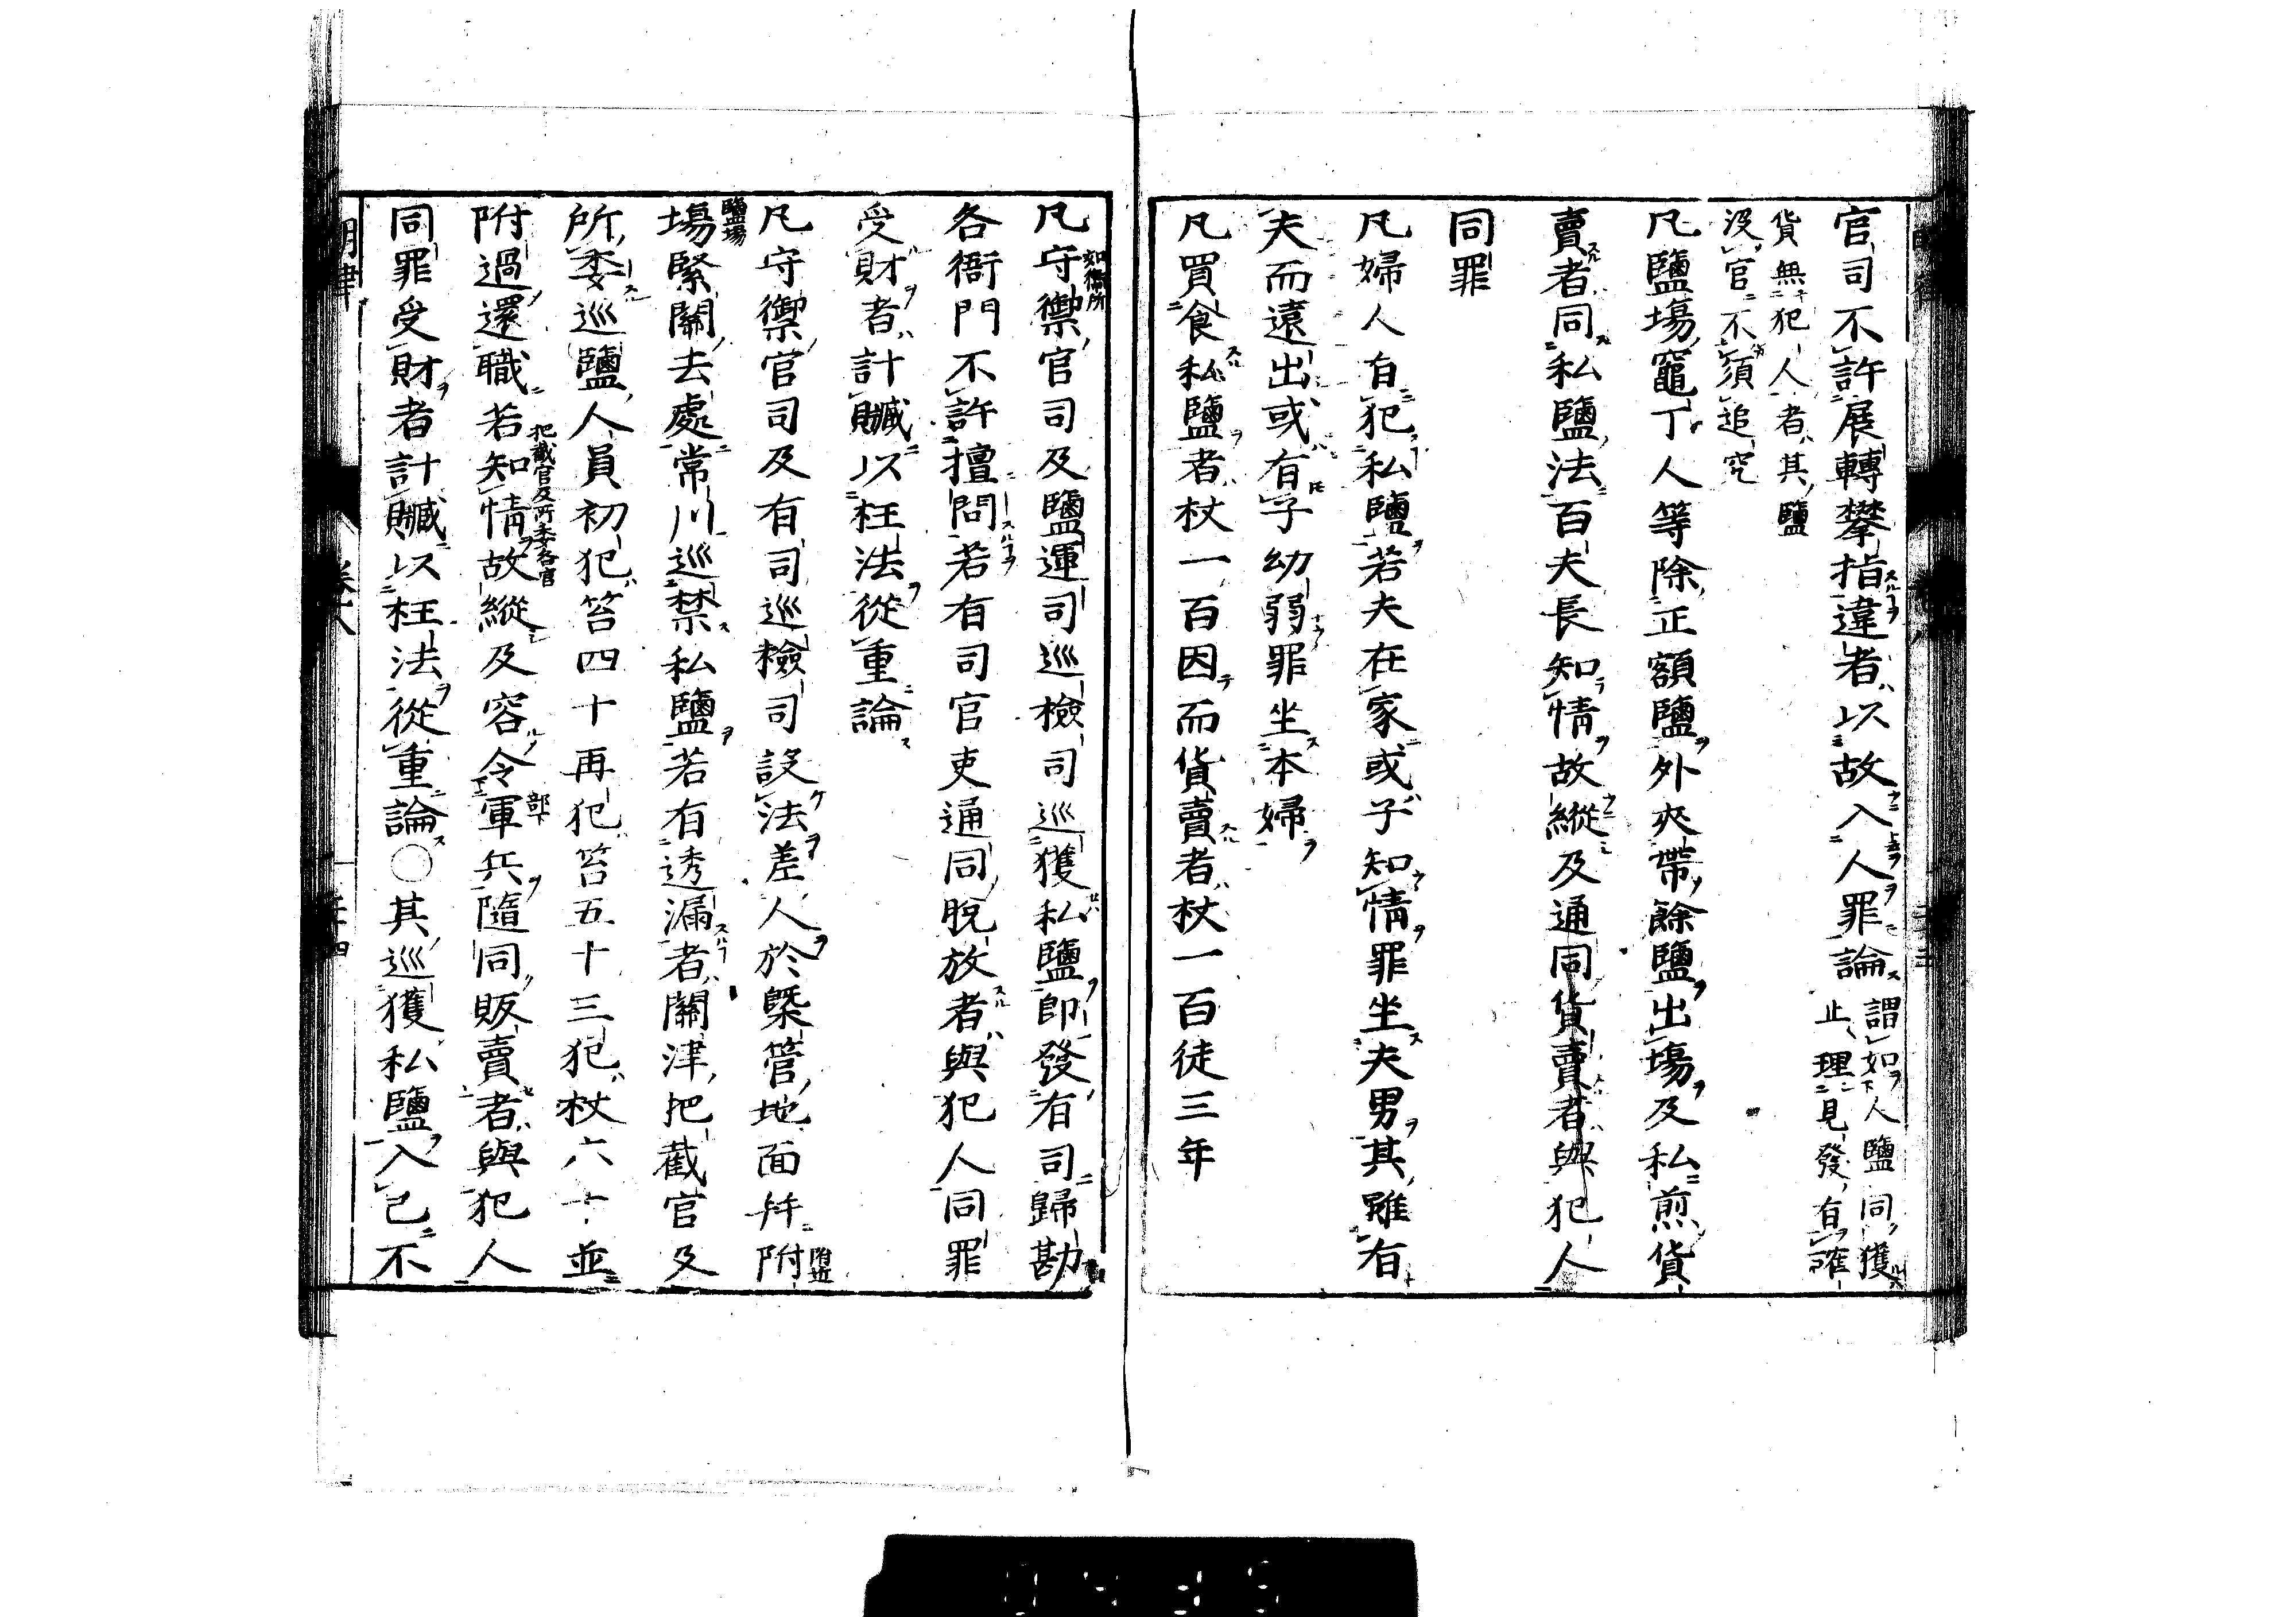 官司不許展轉攀指違者以故入人罪論謂如人鹽同獲
止理見發有確
貨無犯人者其鹽
沒官不須追究
凡鹽場竈丁人等除正額鹽外夾帶餘鹽出場及私煎貨
賣者同私鹽法百夫長知情故縱及通同貨賣者與犯人
同罪
凡婦人有犯私鹽若夫在家或子知情罪坐夫男其雖有
夫而遠出或有子幼弱罪坐本婦
凡買食私鹽者杖一百因而貨賣者杖一百徒三年
凡守禦官司及鹽運司巡檢司巡獲私鹽即發有司歸勘
如衞所
各衙門不許擅問若有司官吏通同脫放者與犯人同罪
受財者計贓以枉法從重論
凡守禦官司及有司巡檢司設法差人於槩管地面幷附
附近
場緊關去處常川巡禁私鹽若有透漏者關津把截官及
鹽場
所委巡鹽人員初犯笞四十再犯笞五十三犯杖六十並
附過還職若知情故縱及容令軍兵隨同販賣者與犯人
把截官及所委各官
部下
同罪受財者計贓以枉法從重論○其巡獲私鹽入己不